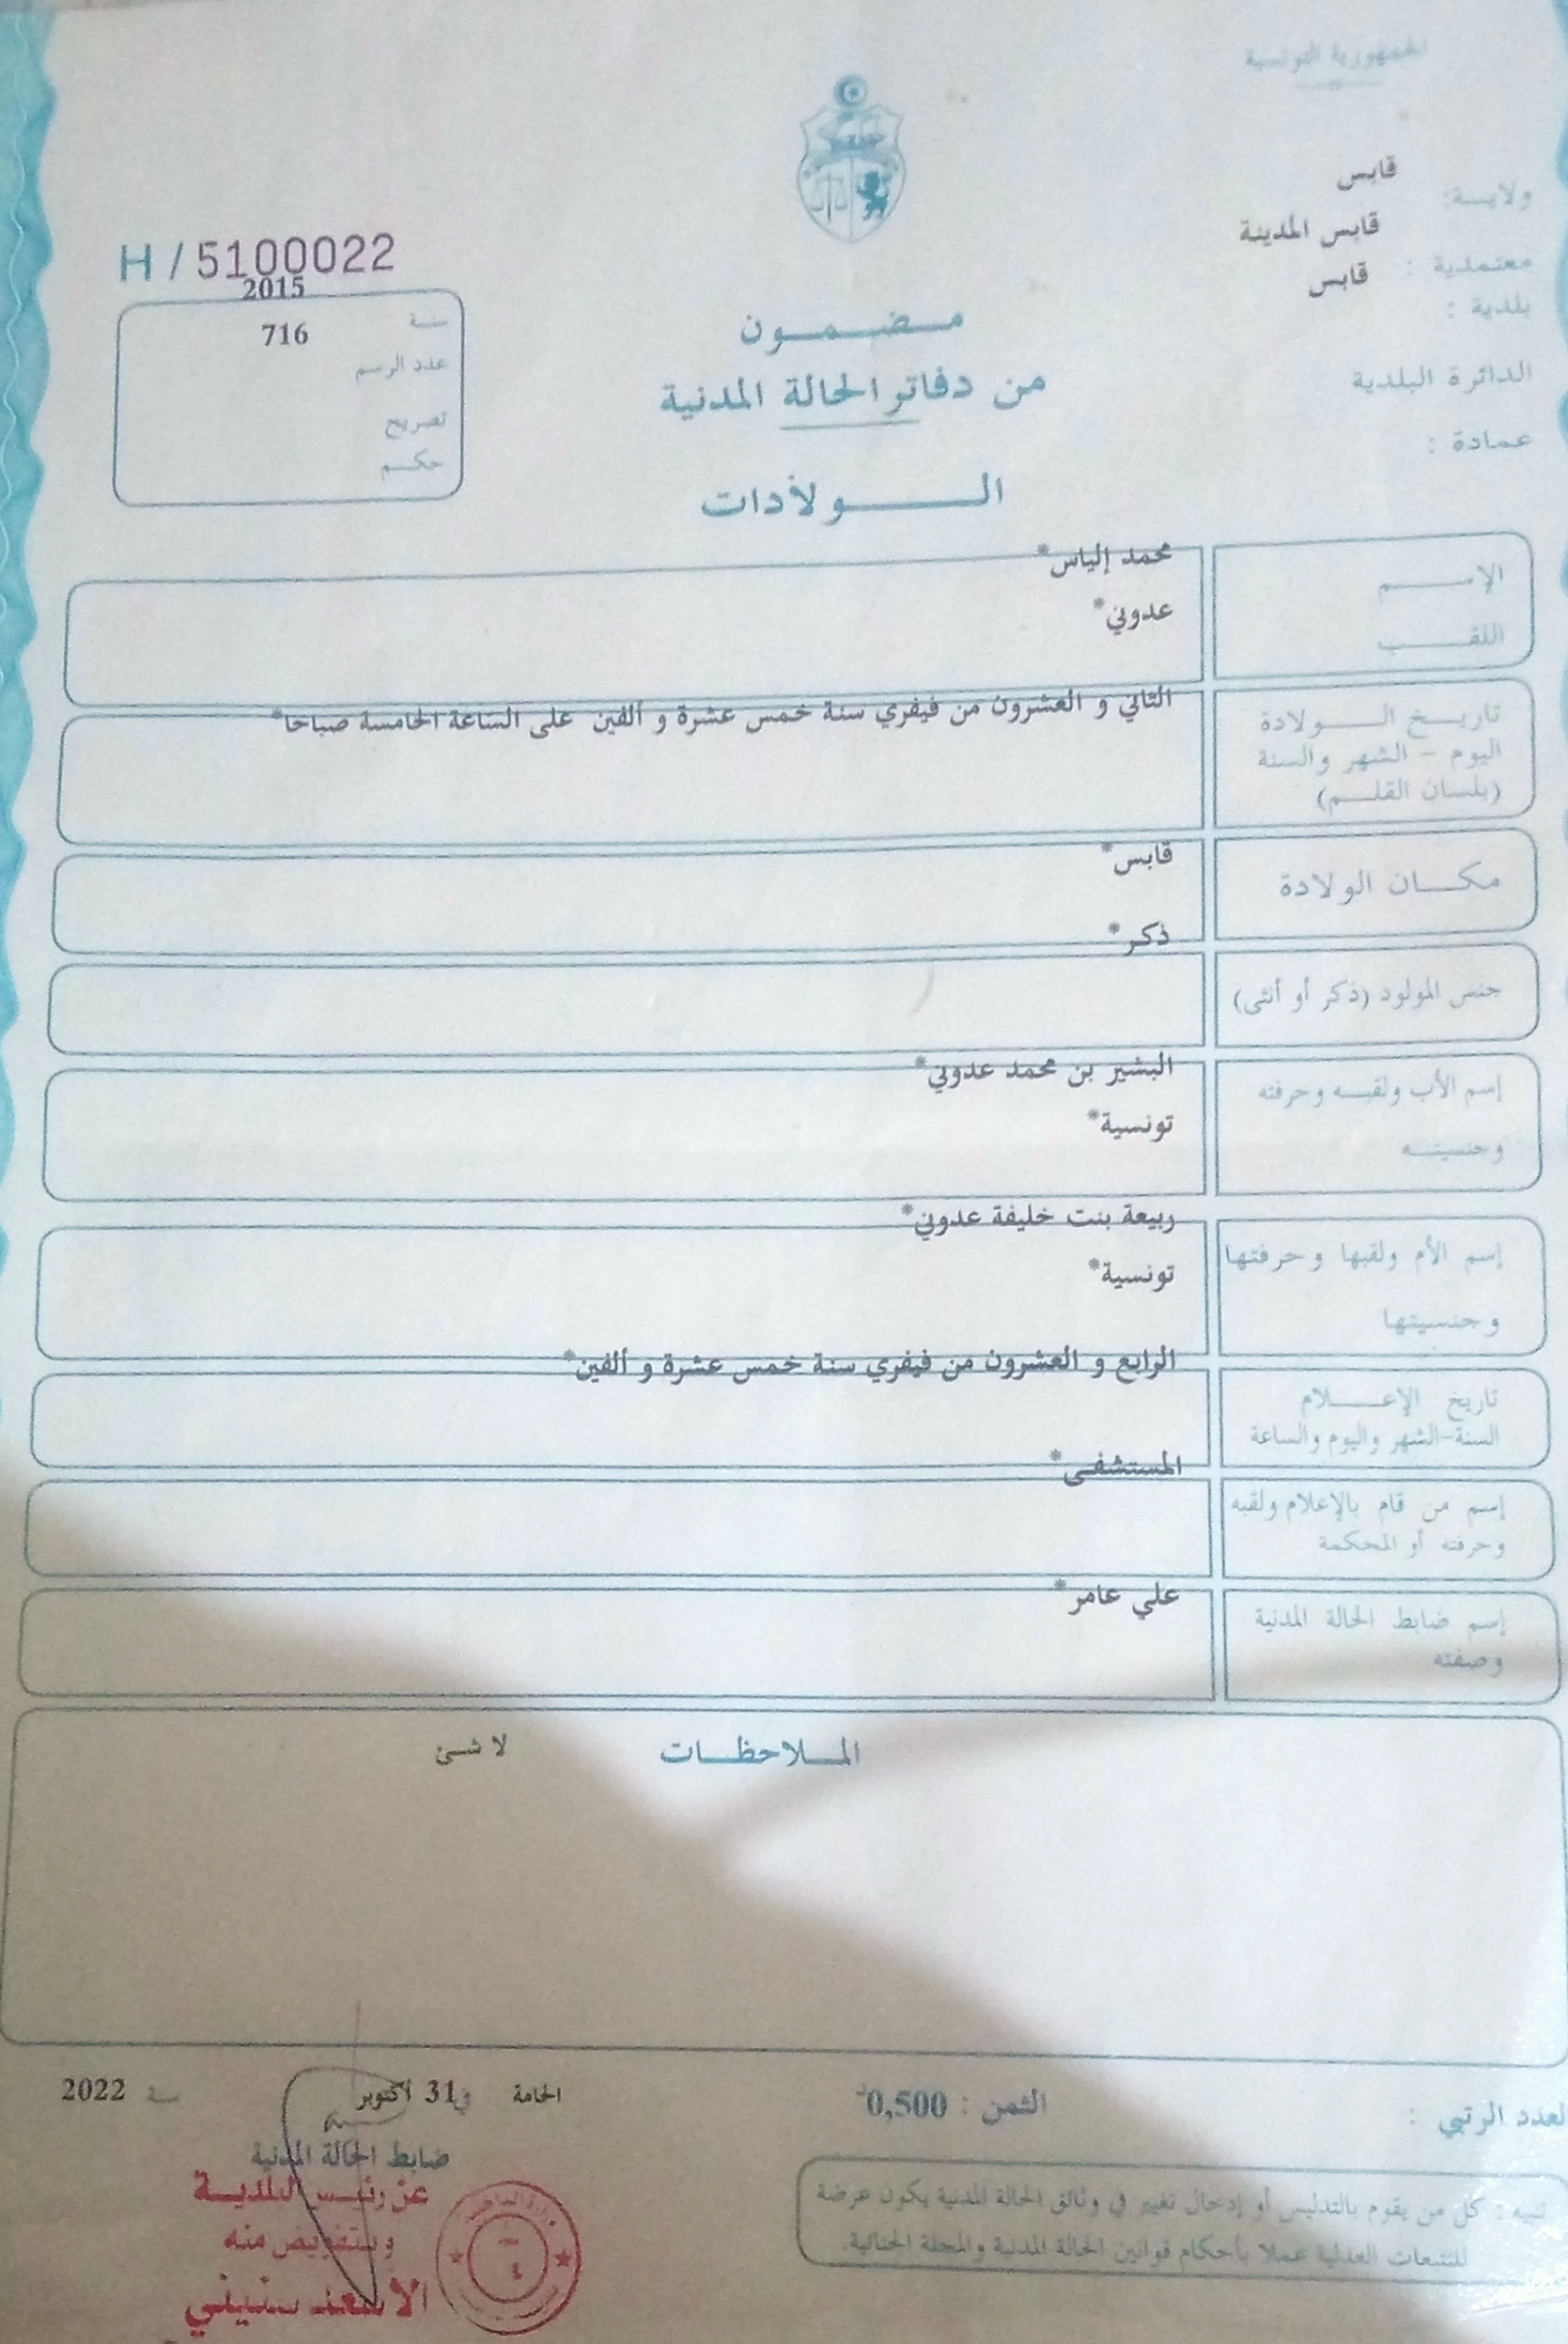 الجمهورية التونسية
ولايــة: قابس
معتمدية : قابس المدينة
بلدية : قابس
الدائرة البلدية
عمادة :
H / 5100022
سنة 2015
عدد الرسم 716
تصريح
حكم
مضمون
من دفاتر الحالة المدنية
الولادات
الإسم محمد إلياس*
اللقب عدوني*
تاريخ الولادة الثاني و العشرون من فيفري سنة خمس عشرة و ألفين على الساعة الخامسة صباحا*
اليوم - الشهر والسنة
(بلسان القلم)
مكان الولادة قابس*
ذكر*
جنس المولود (ذكر أو أنثى)
إسم الأب ولقبه وحرفته البشير بن محمد عدوني*
وجنسيته تونسية*
إسم الأم ولقبها وحرفتها ربيعة بنت خليفة عدوني*
وجنسيتها تونسية*
تاريخ الإعلام الرابع و العشرون من فيفري سنة خمس عشرة و ألفين*
السنة-الشهر واليوم والساعة
إسم من قام بالإعلام ولقبه المستشفى*
وحرفته أو المحكمة
إسم ضابط الحالة المدنية علي عامر*
وصفته
الملاحظات لا شئ
لعدد الرتبي :
الثمن : 0,500د
الحامة في 31 أكتوبر سنة 2022
ضابط الحالة المدنية
عن رئيس البلدية
وبتفويض منه
الأسعد سنيني
تنبيه : كل من يقوم بالتدليس أو إدخال تغيير في وثائق الحالة المدنية يكون عرضة
للتتبعات العدلية عملا بأحكام قوانين الحالة المدنية والمجلة الجنائية.